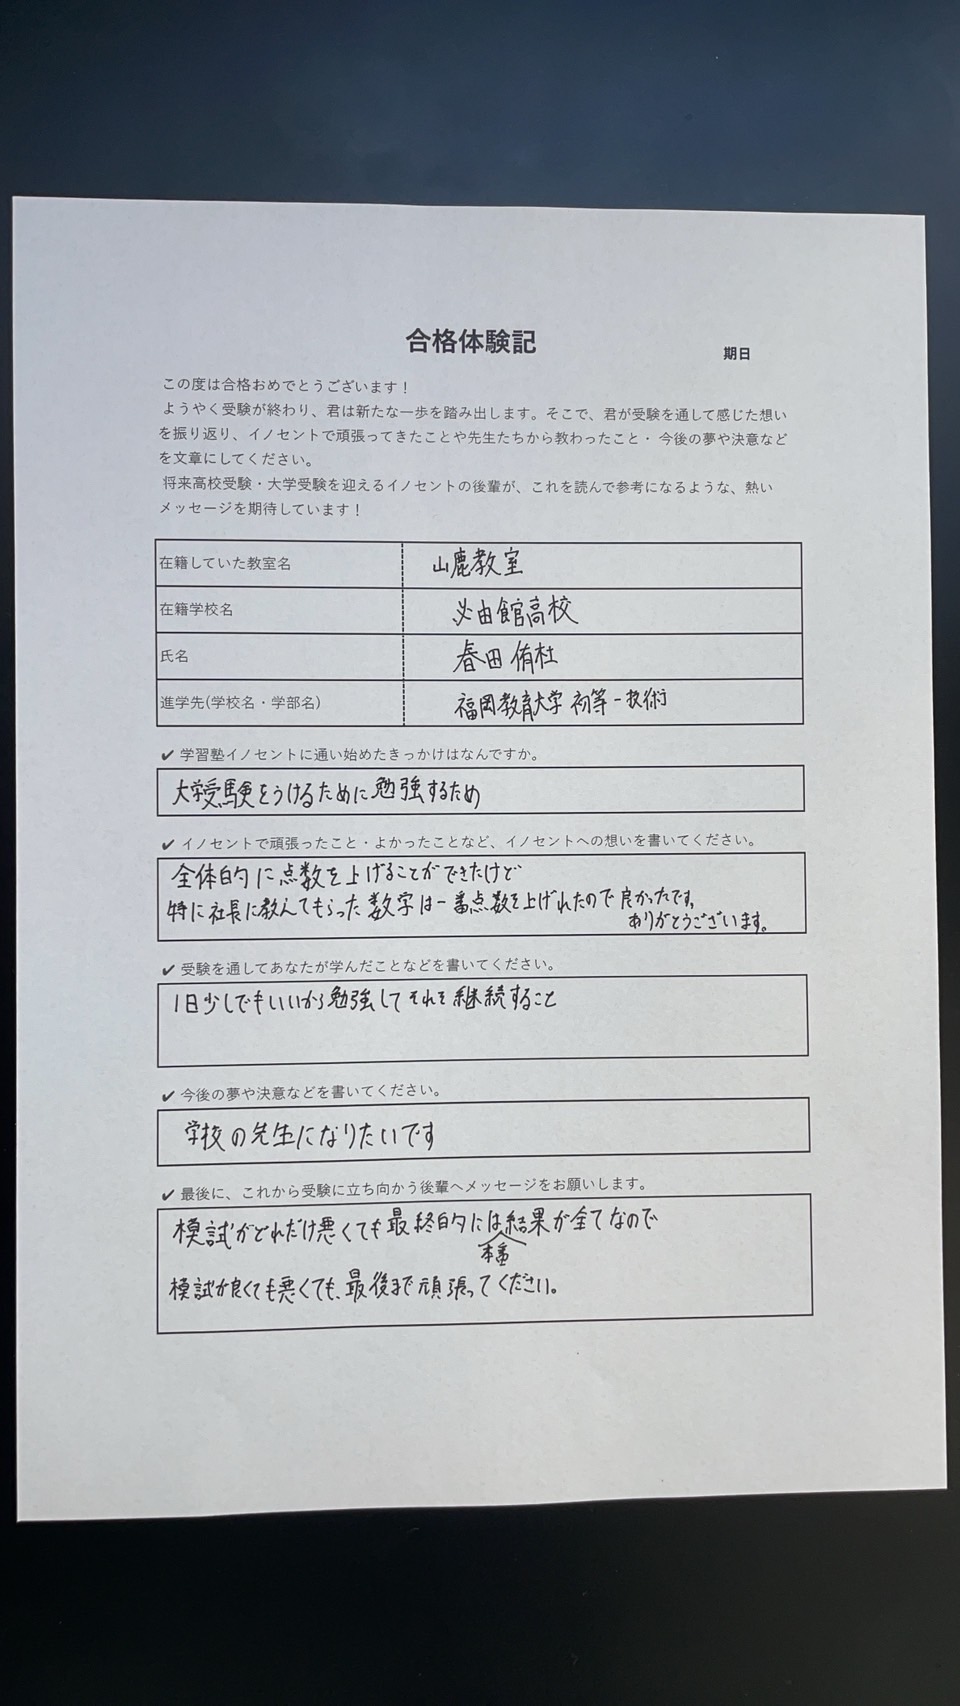 合格体験記
期日
この度は合格おめでとうございます！
ようやく受験が終わり、君は新たな一歩を踏み出します。そこで、君が受験を通して感じた想い
を振り返り、イノセントで頑張ってきたことや先生たちから教わったこと・今後の夢や決意など
を文章にしてください。
将来高校受験・大学受験を迎えるイノセントの後輩が、これを読んで参考になるような、熱い
メッセージを期待しています！
在籍していた教室名 山鹿教室
在籍学校名 必由館高校
氏名 春田 侑杜
進学先(学校名・学部名) 福岡教育大学 初等－技術
✔ 学習塾イノセントに通い始めたきっかけはなんですか。
大学受験をうけるために勉強するため
✔ イノセントで頑張ったこと・よかったことなど、イノセントへの想いを書いてください。
全体的に点数を上げることができたけど
特に社長に教えてもらった数学は一番点数を上げれたので良かったです。
ありがとうございます。
✔ 受験を通してあなたが学んだことなどを書いてください。
1日少しでもいいから勉強してそれを継続すること
✔ 今後の夢や決意などを書いてください。
学校の先生になりたいです
✔ 最後に、これから受験に立ち向かう後輩へメッセージをお願いします。
模試がどれだけ悪くても最終的には結果が全てなので
本番
模試が良くても悪くても、最後まで頑張ってください。